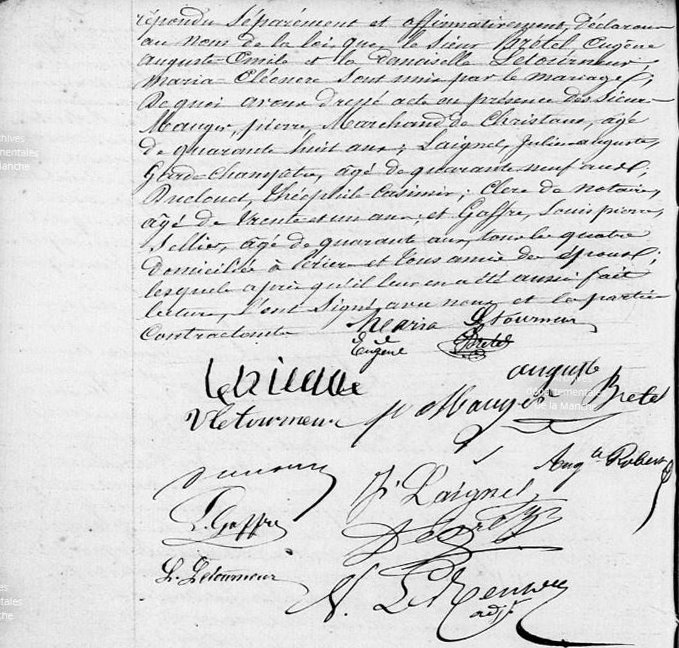 répondu séparément et affirmativement, déclarons
au nom de la loi que le sieur Brétel, Eugène
Auguste-Emile et la Damoiselle Letourneur,
Maria-Eléonore sont unis par le mariage;
De quoi avons dressé acte en présence des sieurs
Mauger, pierre, Marchand de Christaux, âgé
de quarante huit ans; Laignel, Julien auguste,
Garde-Champêtre, âgé de quarante neuf ans;
Théophile-Casimir; Clerc de Notaire,
âgé de trente et un ans; et Gaffre, Louis pierre,
Sellier, âgé de quarante ans, tous les quatre
domiciliés à Périers et tous amis des époux;
lesquels après qu'il leur en a été aussi fait
lecture, l'ont signé avec nous et les parties
Contractantes
Maria Letourneur
Eugène Brétel
auguste
Bretel
V Letourneur
p Mauger
Augte Robert
J Laignel
L. Gaffre
L. Letourneur
adjt
chives
mentales
Manche
Archives
départementales
de la Manche
es
tales
che